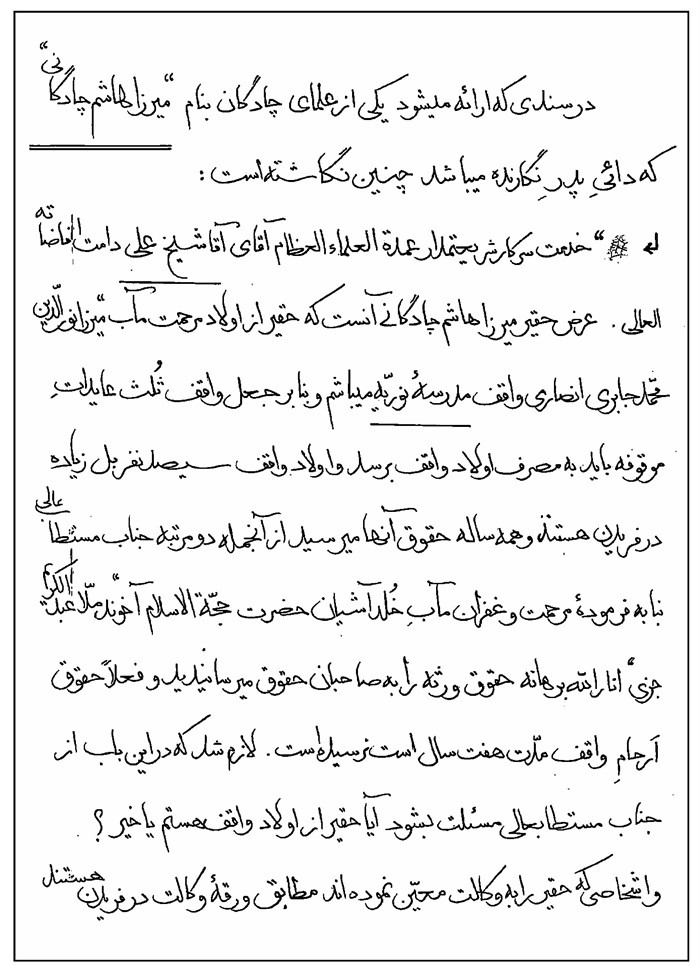 در سندی که ارائه میشود یکی از علمای چادگان بنام "میرزا هاشم چادگانی"
که دائیِ پدرِ نگارنده میباشد چنین نگاشته است :
"خدمت سرکار شریعتمدار عمدة العلماء العظام آقای آقا شیخ علی دامت افاضاته
العالی . عرض حقیر میرزا هاشم چادگانی آنست که حقیر از اولاد مرحمت مآب "میرزا نورالدّین
محمّد جابری انصاری واقف مدرسهٔ نوریّه میباشم و بنا بر جعل واقف ثُلث عایداتِ
موقوفه باید به مصرف اولاد واقف برسد و اولاد واقف سیصد نفر بل زیاده
در فریدن هستند و همه ساله حقوق آنها میرسید از آنجمله دو مرتبه جناب مستطاب عالی
بنا به فرمودهٔ مرحمت و غفران مآبِ خُلد آشیان حضرت حجّة الاسلام آخوند ملّا عبدالکریم
جزی" انارالله برهانه حقوق ورثه را به صاحبان حقوق میرسانیدید و فعلاً حقوق
اَرحامِ واقف مدّت هفت سال است نرسیده است . لازم شد که در این باب از
جناب مستطابعالی مسئلت بشود آیا حقیر از اولاد واقف هستم یا خیر ؟
و اشخاصی که حقیر را به وکالت معیّن نموده اند مطابق ورقهٔ وکالت در فریدن هستند